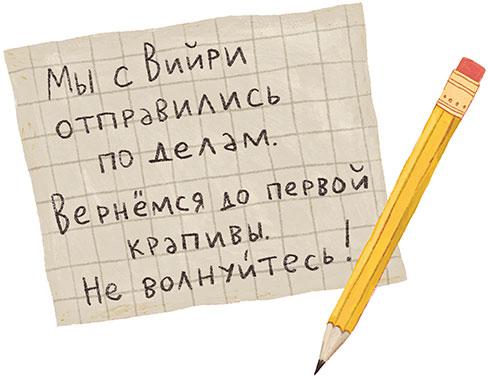 Мы с Вийри
отправились
по делам.
Вернёмся до первой
крапивы.
Не волнуйтесь!